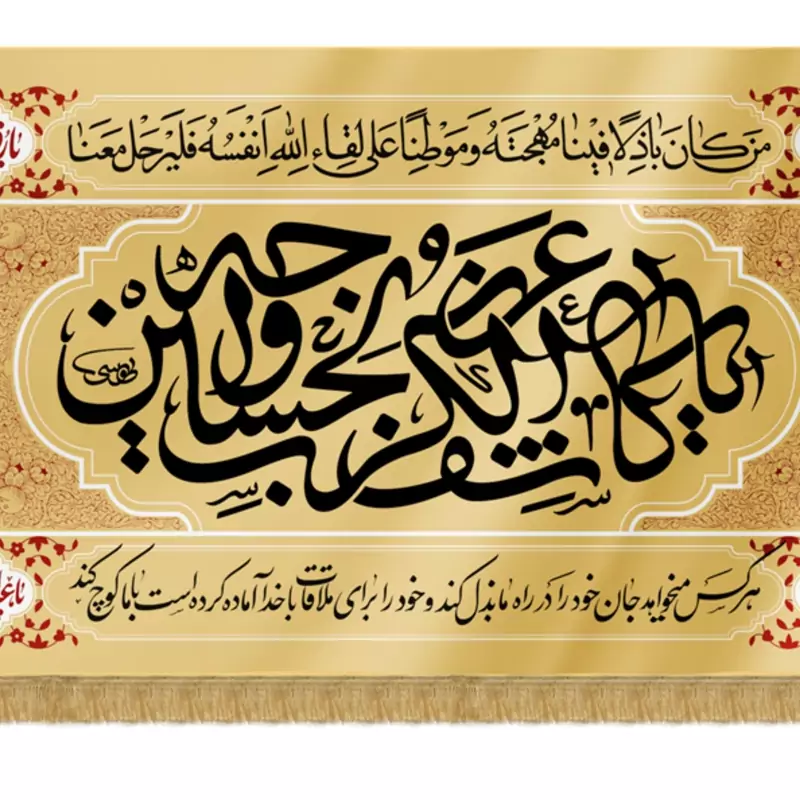 مَن کَانَ بَاذِلًا فِینَا مُهْجَتَهُ وَمَوَطِنًا عَلَى لِقَاءِ اللهِ اَنْفُسَهُ فَلْیَرْحَلْ مَعَنَا
یا کاشف الکرب عن وجه الحسین
هر کس میخواهد جان خود را در راه ما بذل کند و خود را برای ملاقات با خدا آماده کرده است با ما کوچ کند